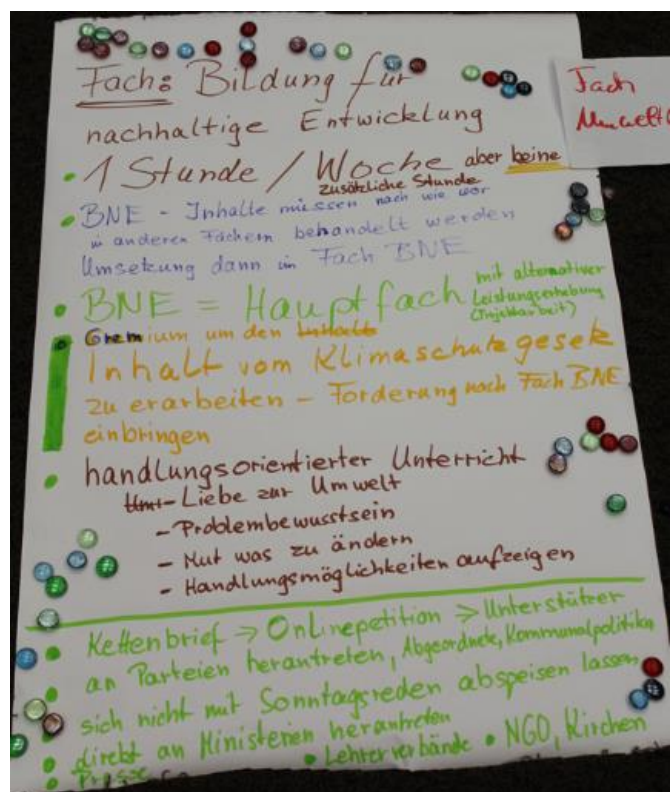 Fach: Bildung für
nachhaltige Entwicklung
• 1 Stunde / Woche aber keine
zusätzliche Stunde
• BNE - Inhalte müssen nach wie vor
in anderen Fächern behandelt werden
Umsetzung dann im Fach BNE
• BNE = Hauptfach mit alternativer
Leistungserhebung
(Projektarbeit)
• Gremium um den Inhalt
Inhalt vom Klimaschutzgesetz
zu erarbeiten – Forderung nach Fach BNE
einbringen
• handlungsorientierter Unterricht
Umt- Liebe zur Umwelt
- Problembewusstsein
- Mut was zu ändern
- Handlungsmöglichkeiten aufzeigen
• Kettenbrief → Onlinepetition → Unterstützer
• an Parteien herantreten, Abgeordnete, Kommunalpolitiker
sich nicht mit Sonntagsreden abspeisen lassen
• direkt an Ministerien herantreten
• Presse • Lehrerverbände • NGO, Kirchen
Fach